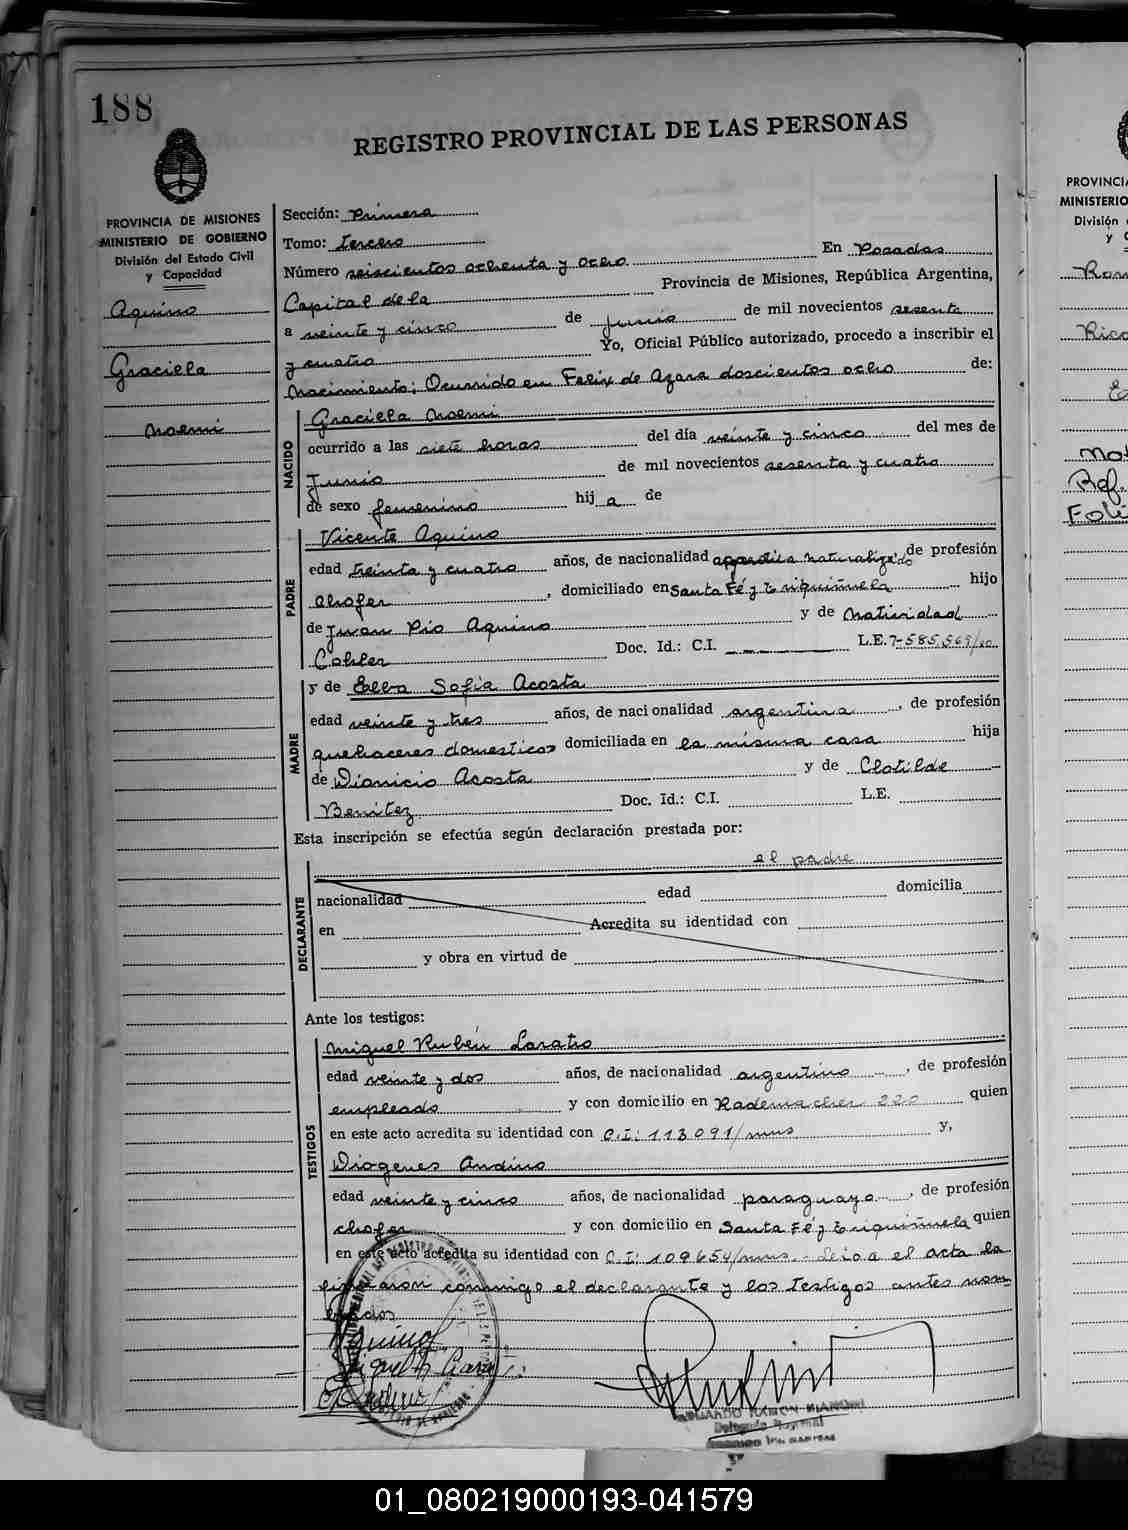 188
REGISTRO PROVINCIAL DE LAS PERSONAS
PROVINCIA DE MISIONES
MINISTERIO DE GOBIERNO
División del Estado Civil
y Capacidad
Aquino
Graciela
Noemi
Sección: Primera
Tomo: tercero
Número seiscientos ochenta y ocho En Posadas
Capital de la Provincia de Misiones, República Argentina,
a veinte y cinco de Junio de mil novecientos sesenta
y cuatro Yo, Oficial Público autorizado, procedo a inscribir el
Nacimiento; Ocurrido en Felix de Azara doscientos ocho de:
NACIDO
Graciela Noemi
ocurrido a las siete horas del día veinte y cinco del mes de
Junio de mil novecientos sesenta y cuatro
de sexo femenino hij a de
PADRE
Vicente Aquino
edad treinta y cuatro años, de nacionalidad naturalizado de profesión
chofer, domiciliado en Santa Fé y hijo
de Juan Pio Aquino y de Natividad
Cohler Doc. Id.: C.I. L.E. 7-585.569/
MADRE
y de Elba Sofia Acosta
edad veinte y tres años, de nacionalidad argentina, de profesión
quehaceres domesticos domiciliada en la misma casa hija
de Dionicio Acosta y de Clotilde
Benitez Doc. Id.: C.I. L.E.
Esta inscripción se efectúa según declaración prestada por:
el padre
DECLARANTE
nacionalidad edad domicilia
en Acredita su identidad con
y obra en virtud de
Ante los testigos:
TESTIGOS
Miguel Rubén
edad veinte y dos años, de nacionalidad argentino, de profesión
empleado y con domicilio en Rademacher 220 quien
en este acto acredita su identidad con C.I: 113091/mns y,
Diogenes Andino
edad veinte y cinco años, de nacionalidad paraguayo, de profesión
chofer y con domicilio en Santa Fé y quien
en este acto acredita su identidad con C.I: 109654/mns.- Leida el acta la
firmaron conmigo el declarante y los testigos antes nom
brados
Aquino
Miguel R.
Andino
Delegado
PROVINCIA
MINISTERIO
División
y C
01_080219000193-041579